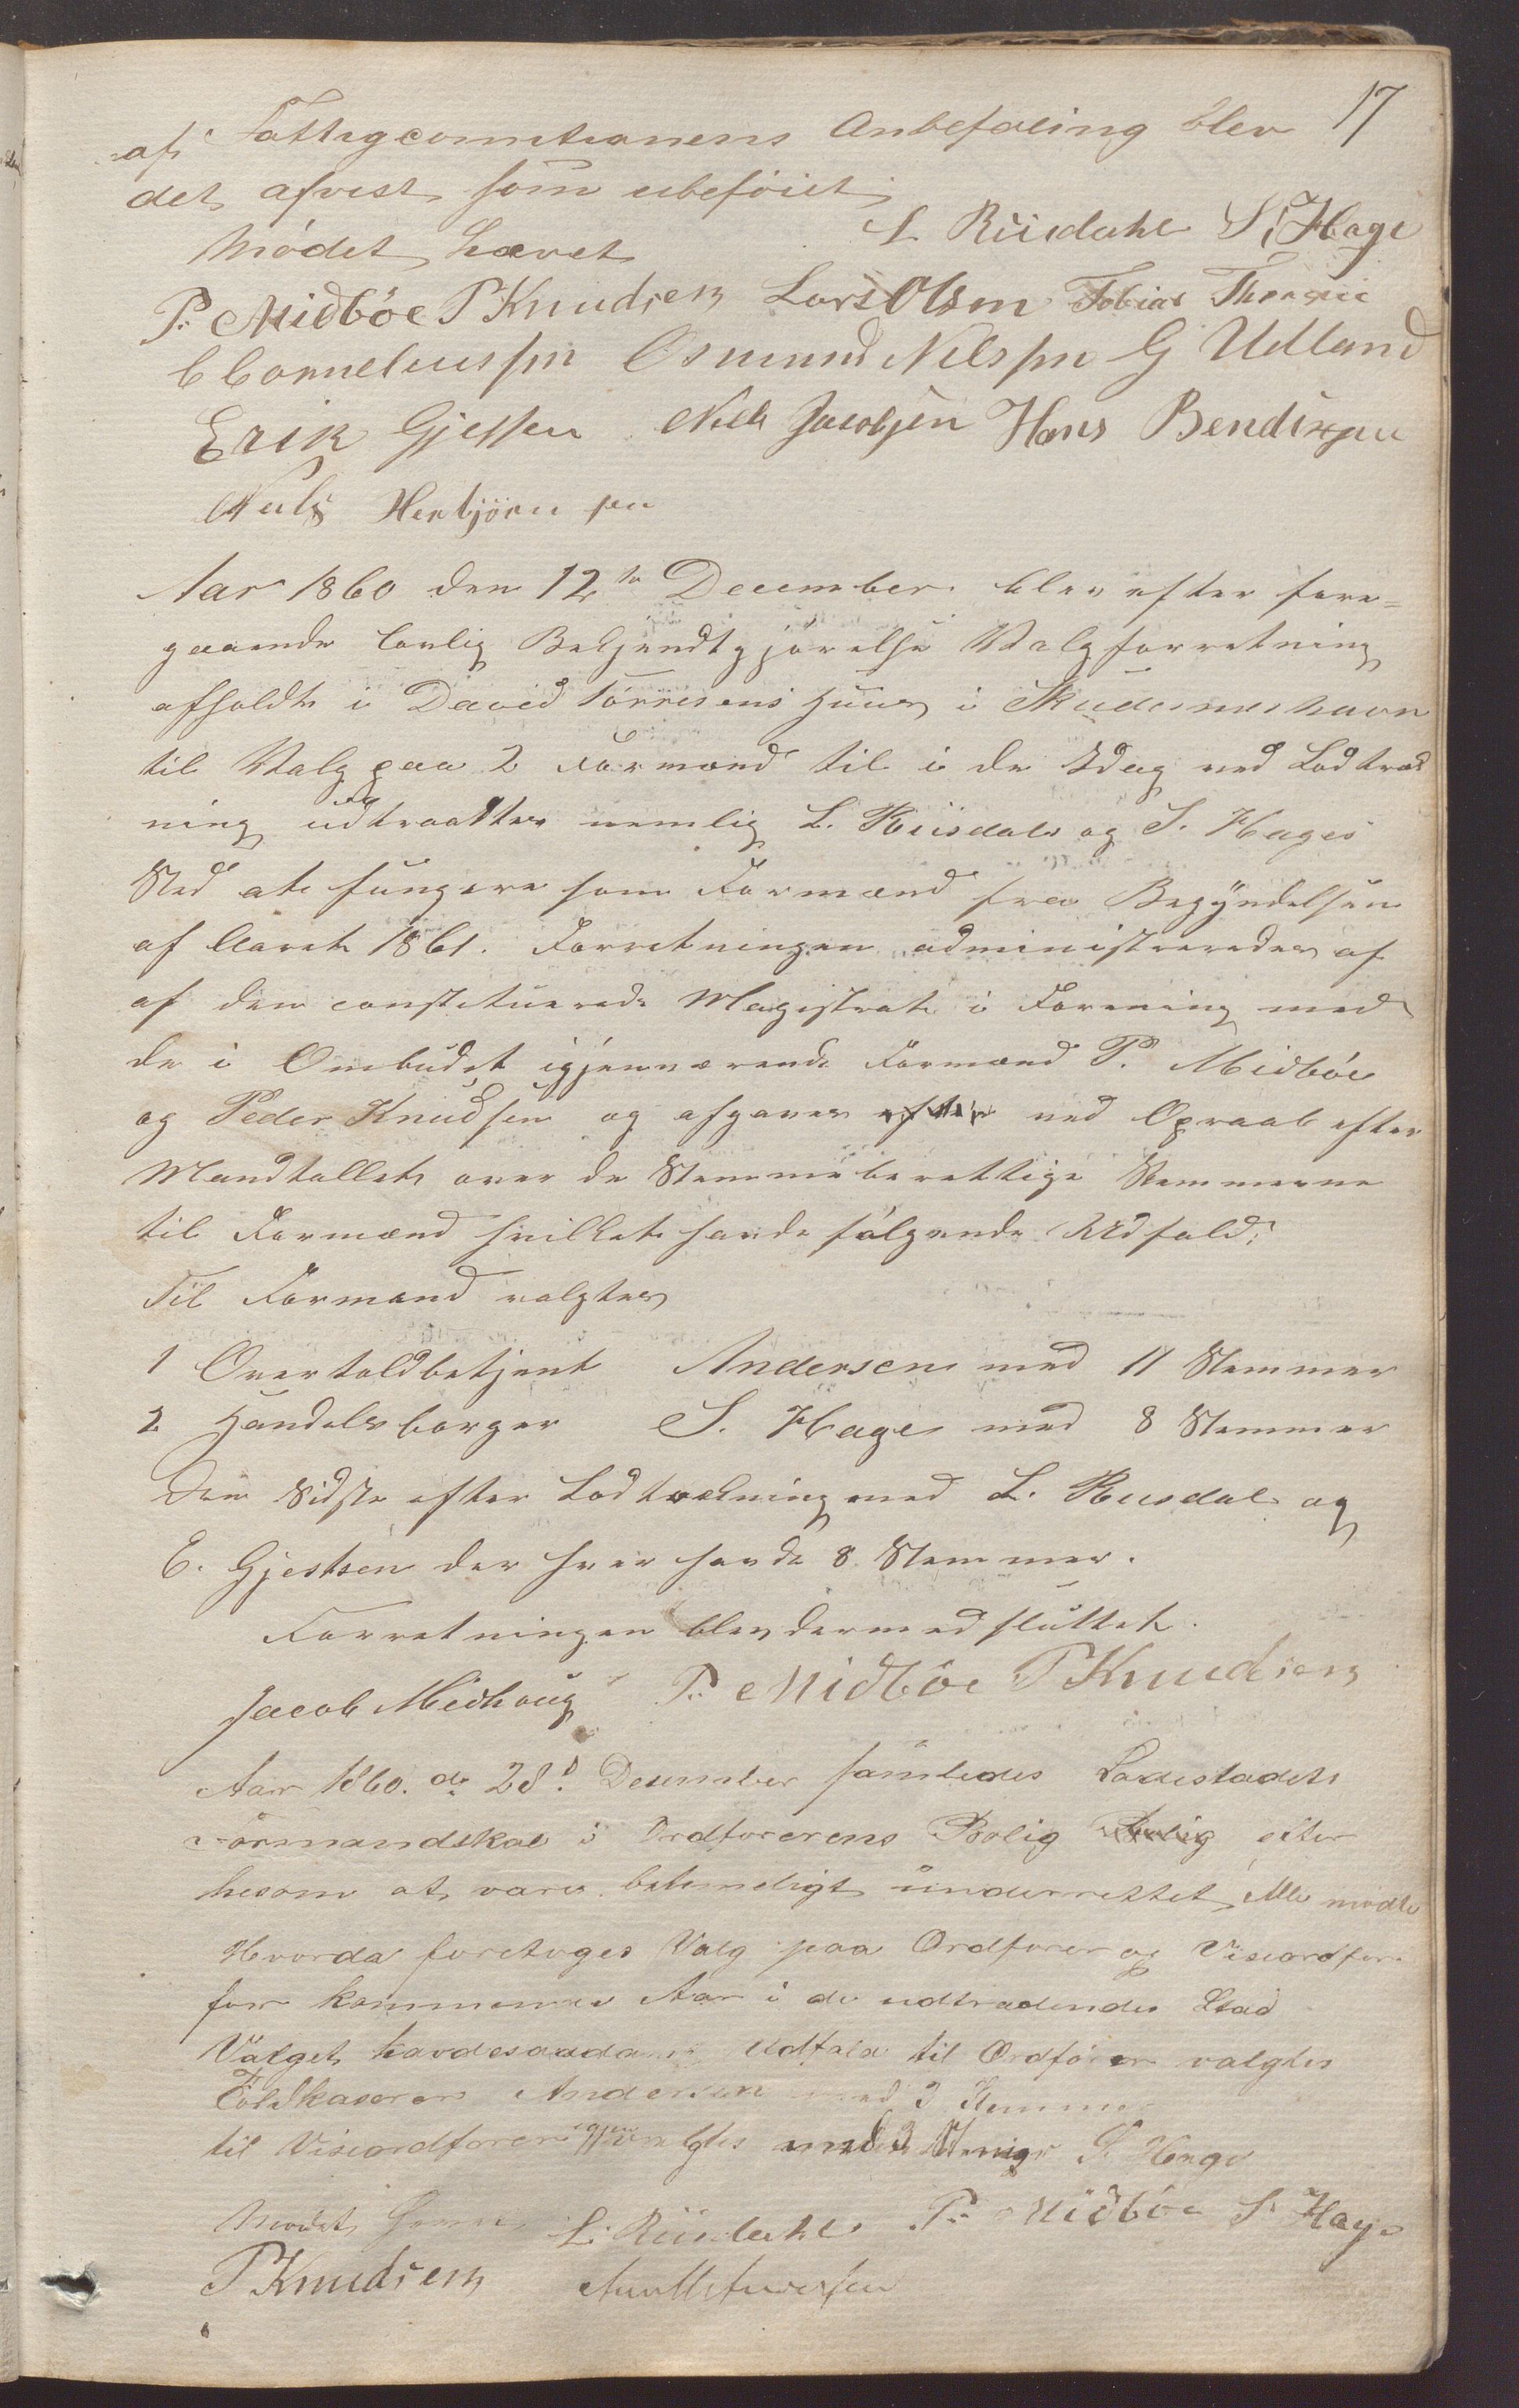 17
af Fattigcommitionens Anbefaling blev
det afvist som ubeföiet
Mödet hævet L Riisdahl S. Hage
P. Midböe P Knudsen Lars Olsen Tobias
C Corneliussen Osmund Nilssen G Udland
Erik Gjessen Nils Jacobsen Hans Bendixsen
Niels Herbjörnsen
Aar 1860 den 12te December blev efter fore=
gaaende lovlig Bekjendtgjörelse Valgforretning
afholdt i David Törresens Huus i Skudesneshavn
til Valg paa 2 Formænd til i de Idag ved Lodtræk
ning udtraadtes nemlig L. Riisdals og S. Hages
Sted at fungere som Formænd fra Begyndelsen
af Aaret 1861. Forretningen administreredes af
af den constituerede Magistrat i Forening med
de i Ombudet igjenværende Formænd P. Midböe
og Peder Knudsen og afgaves efter ved Opraab efter
Mandtallet over de Stemmeberettige Stemmerne
til Formænd hvilket havde fölgende Udfald:
Til Formænd valgtes
1 Overtoldbetjent Andersen med 11 Stemmer
2 Handelsborger S. Hage med 8 Stemmer
Den Sidste efter Lodtrækning med L. Riisdal og
E. Gjestsen der hver havde 8 Stemmer.
Forretningen blev dermed sluttet.
Jacob Midhoug P. Midböe P Knudsen
Aar 1860. d. 28d. Desember samledes Ladestadets
Formandskab i Ordforerens Bolig Bolig efter
hesom at være betimeligt underrettet, Alle mødte
Hvorda foretoges Valg paa Ordforer og Viseordfør
for kommende Aar i de udtrædendes Stad
Valget havde saadant Udfald til Ordförer valgtes
Toldkaserer Andersen med 3 Stemmer
til Viseordforer igjen valgtes med 3 Stemer S. Hage
Mødet hævet L. Riisdahl P. Midböe S. Hage
P Knudsen